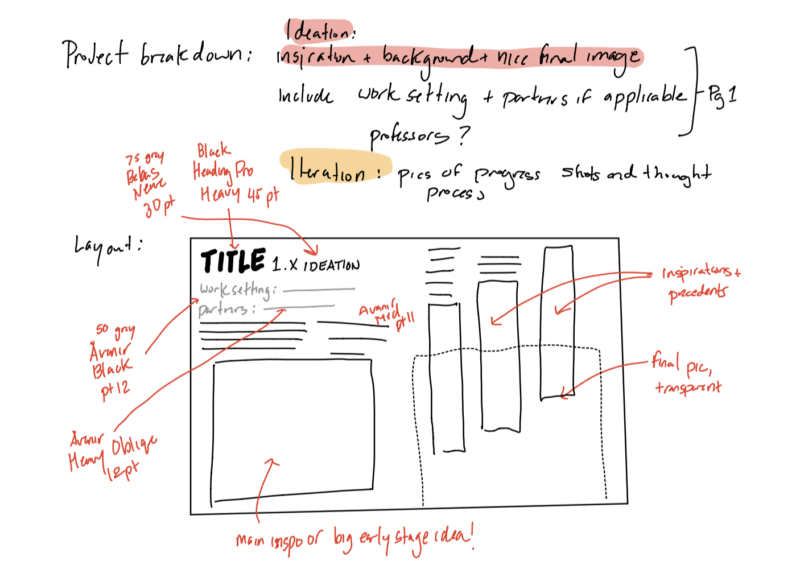 Ideation:
Project breakdown: insiration + background + nice final image
Include work setting + partners if applicable
Pg 1
professors?
Iteration: pics of progress shots and thought
process
75 gray
Bebas
Neue
30pt
Black
Heading Pro
Heavy 45 pt
Layout:
TITLE 1.X IDEATION
work setting:
partners:
Avenir
Med
pt 11
inspirations +
precedents
50 gray
Avenir
Black
pt 12
final pic,
transparent
Avenir
Heavy Oblique
12pt
main inspo or big early stage idea!